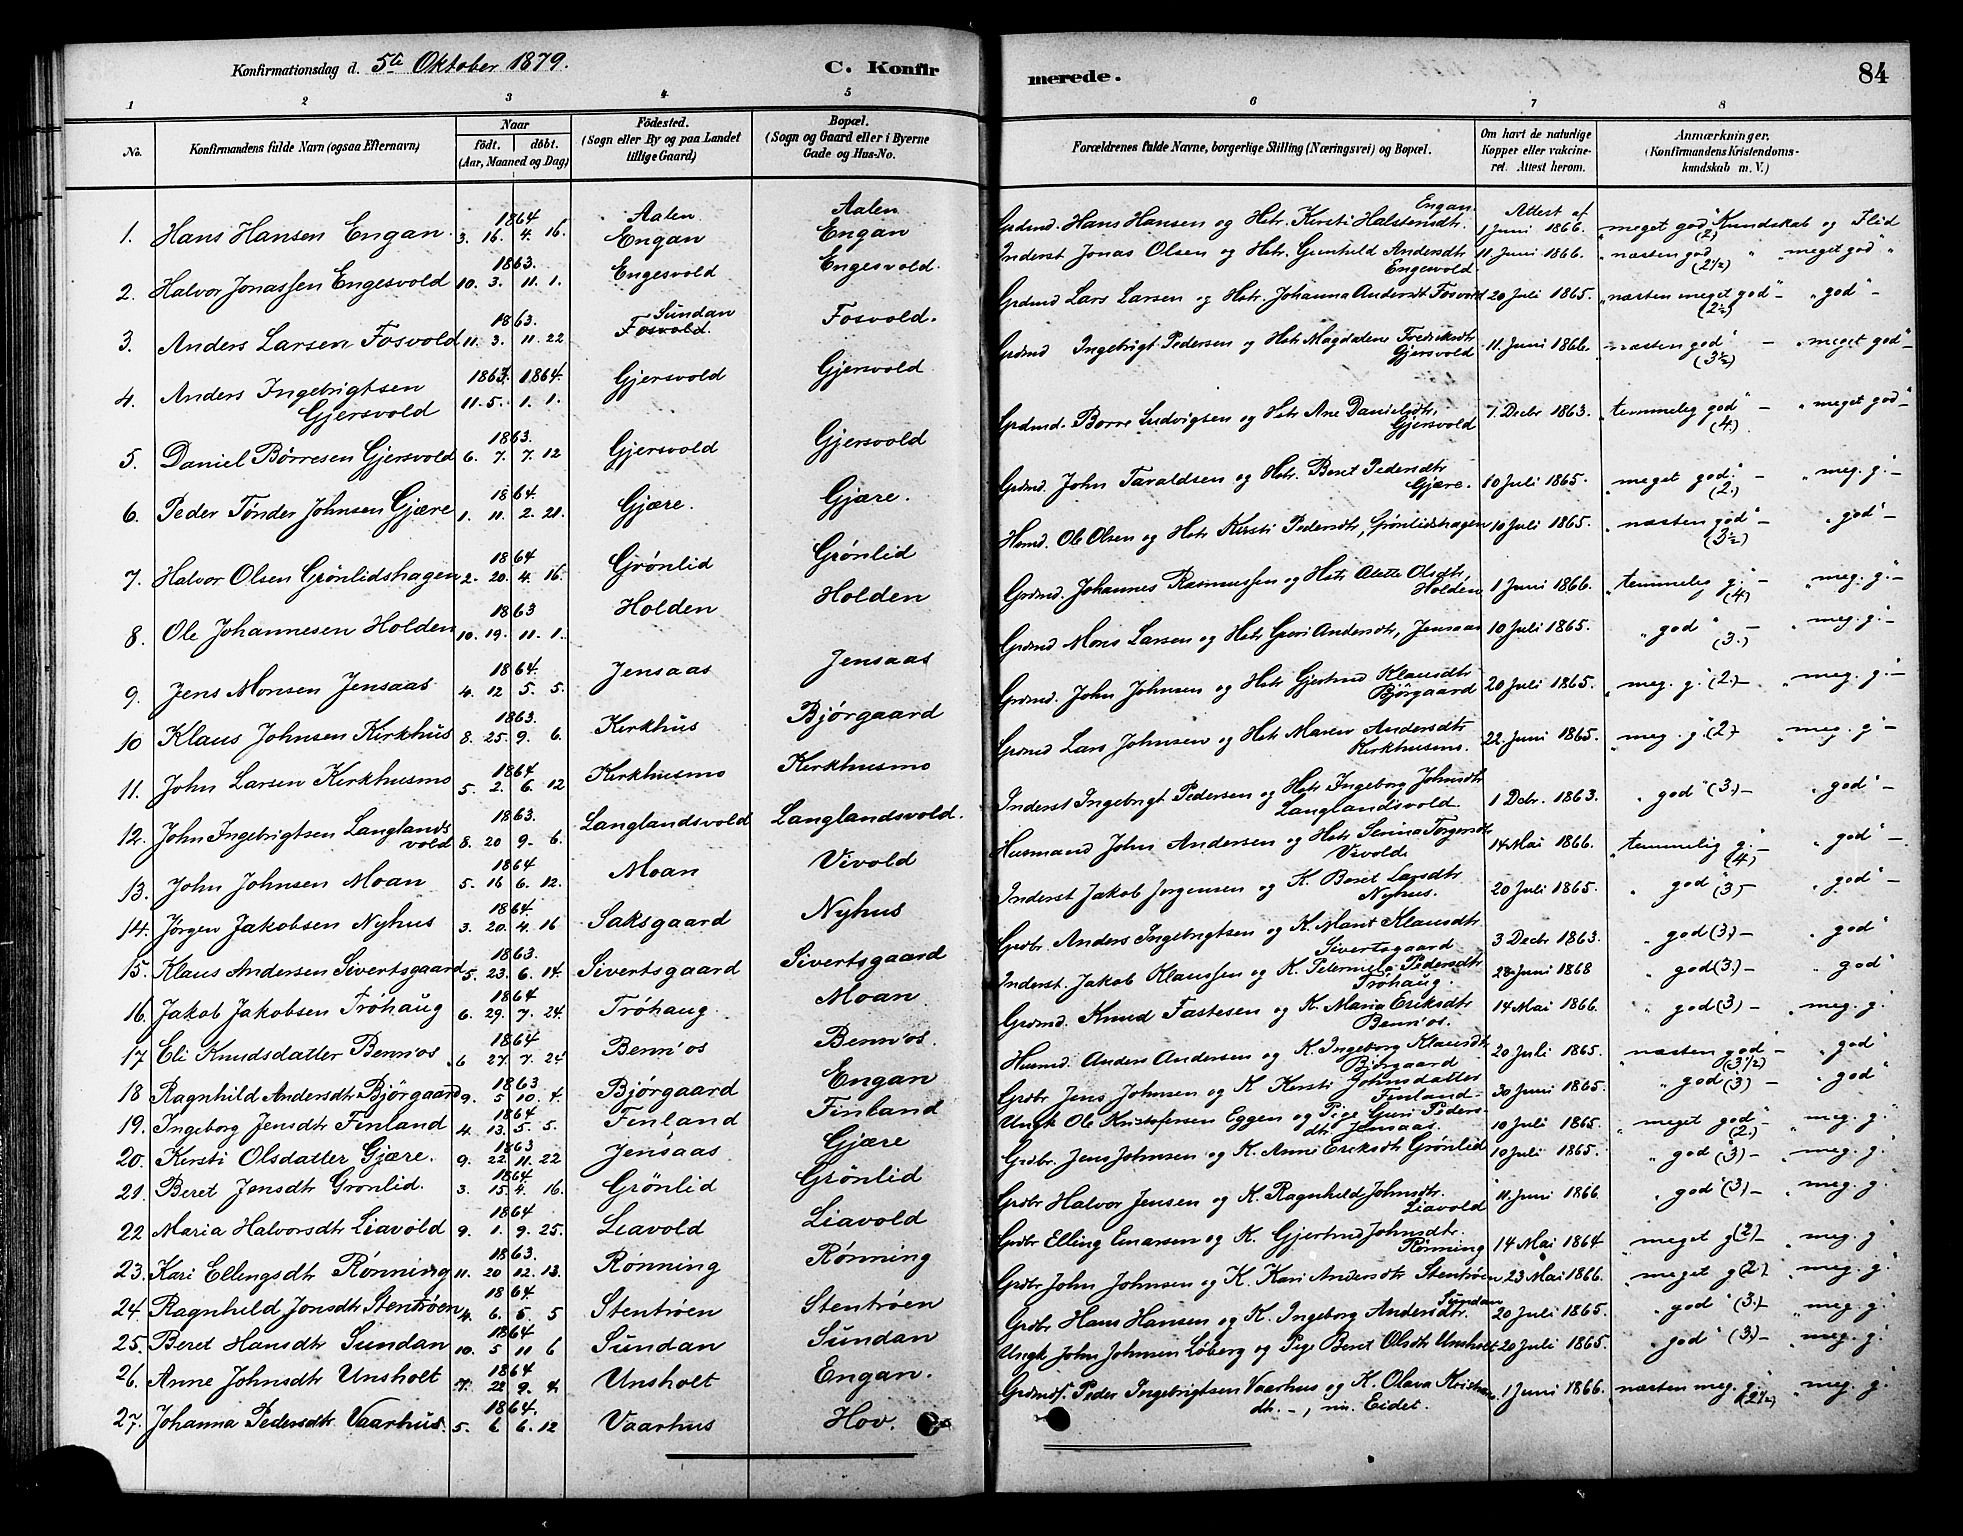 Konfirmationsdag d. 5te Oktober 1879.
C. Konfir
merede.
84
1 2 3 4 5 6 7 8
No.
Konfirmandens fulde Navn (ogsaa Efternavn)
Naar
födt. döbt.
(Aar, Maaned og Dag)
Födested.
(Sogn eller By og paa Landet
tillige Gaard)
Bopæl.
(Sogn og Gaard eller i Byerne
Gade og Hus-No.
Forældrenes fulde Navne, borgerlige Stilling (Næringsvei) og Bopæl.
Om havt de naturlige
Kopper eller vakcine-
ret. Attest herom.
Anmærkninger.
(Konfirmandens Kristendoms-
kundskab m. V.)
1. Hans Hansen Engan 1864 3. 16. 4. 16. Aalen Engan Aalen Engan Grdmd. Hans Hansen og Hstr. Kirsti Halstensdtr. Engan Attest af 1 Juni 1866. "meget god" (2) Kundskab og Flid
2. Halvor Jonassen Engesvold 1863. 10. 3. 11. 1. Engesvold Engesvold. Inderst Jonas Olsen og Hstr. Gunhild Andersdtr Engesvold 11 Juni 1866. "næsten god (2½) " "meget god "
3. Anders Larsen Fosvold 1863. 11. 3. 11. 22 Sundan Fosvold. Fosvold. Grdmd Lars Larsen og Hstr. Johanna Andersdt Fosvold 20 Juli 1865. "næsten meget god" (2½) - "god" -
4. Anders Ingebrigtsen Gjersvold 1863. 1864. 11. 5. 1. 1. Gjersvold Gjersvold Grdmd Ingebrigt Pedersen og Hstr Magdalene Fredriksdtr Gjersvold 11. Juni 1866. "næsten god" (3½) - "meget god" -
5. Daniel Börresen Gjersvold 1863. 6. 7. 7. 12 Gjersvold Gjersvold Grdmd. Borre Ludvigsen og Hstr Ane Danielsdtr, Gjersvold 7. Decbr 1863. "temmelig god" (4.) - "meget god" -
6. Peder Tønder Johnsen Gjære 1864. 1. 11. 2. 21. Gjære. Gjære. Grdmd. John Taraldsen og Hstr. Beret Pedersdtr Gjære. 10 Juli 1865. "meget god." (2.) - "meg. g." -
7. Halvor Olsen Grönlidshagen 1864 2. 20. 4. 16. Grönlid Grönlid Hsmd. Ole Olsen og Hstr Kirsti Pedersdtr, Grönlidshagen 10 Juli 1865. "næsten god" (3½) - "god" -
8. Ole Johannesen Holden 1863 10. 19. 11. 1. Holden Holden Grdmd. Johannes Rasmussen og Hstr Alette Olsdtr, Holden 1 Juni 1866. "temmelig g." (4) - "meg. g." -
9. Jens Monsen Jensaas 1864. 4. 12 5. 5. Jensaas Jensaas Grdmd Mons Larsen og Hstr Guri Andersdtr, Jensaas 10 Juli 1865. "god" (3.) - "meg. g." -
10 Klaus Johnsen Kirkhus 1863. 8. 25. 9. 6. Kirkhus Bjórgaard Grdmd. John Johnsen og Hstr Gjertrud Klausdtr Bjórgaard 20 Juli 1865. "meg. g." (2.) - "meg. g." -
11. John Larsen Kirkhusmo 1864 5. 2. 6. 12 Kirkhusmo Kirkhusmo Grdmd Lars Johnsen og Hstr Maren Andersdtr Kirkhusmo. 22 Juni 1865. "meg. g" (2.) "meg. g" -
12. John Ingebrigtsen Langlandsvold 1863. 8. 20 9. 6. Langlandsvold Langlandsvold. Inderst Ingebrigt Pedersen og Hstr Ingeborg Johnsdtr Langlandsvold. 1 Dcbr. 1863. "god" (3.) - "god" -
13. John Johnsen Moan 1864 5. 16 6. 12. Moan Vivold Husmand John Andersen og Hstr Serina Torgersdtr Vivold 14 Mai 1866. "temmelig g." (4) - "god" -
14. Jörgen Jakobsen Nyhus 1864. 3. 20. 4. 16 Saksgaard Nyhus Inderst Jakob Jorgensen og K. Beret Larsdtr Nyhus. 20 Juli 1865. "god" (3.) - "god" -
15. Klaus Andersen Sivertsgaard 1863. 5. 23. 6. 14. Sivertsgaard Sivertsgaard Grdbr. Anders Ingebrigtsen og K. Marit Klausdtr Sivertsgaard 3 Decbr 1863. "god (3.) - "god"
16. Jakob Jakobsen Tróhaug 1864 6. 29. 7. 24. Tróhaug. Moan. Inderst. Jakob Klaussen og K. Peternele Pedersdtr Tróhaug. 28 Juni 1868 "god (3.) - "god"
17 Eli Knudsdatter Benn'os 1864 6 27. 7. 24 Benn'os Benn'os. Grdmd. Knud Fastesen og K. Maria Eriksdtr Benn'os. 14 Mai 1866. "god (3.) - "meg. g."
18 Ragnhild Andersdtr Bjórgaard 1863. 9. 5 10. 4. Bjórgaard Engan Husmd. Anders Andersen og K. Ingeborg Klausdtr Bjórgaard 20 Juli 1865. "næsten god" (3½) - "god"
19. Ingeborg Jensdtr Finland 1864 4. 13. 5. 5. Finland Finland Grdbr Jens Johnsen og K Kersti Johnsdatter Finland - 30 Juni 1865. "god (3) - "god"
20. Kersti Olsdatter Gjære. 1863 9. 22 11. 22 Jensaas Gjære Ungk Ole Kristofersen Eggen og Pige Guri Pedersdtr Jensaas. 10 Juli 1865. "meget god" (2.) - "meg. g."
21. Beret Jensdtr Grönlid. 1864 3. 15. 4. 16. Grönlid Grönlid Grdbr. Jens Johnsen og K. Anne Eriksdtr Grönlid 10 Juli 1865. "god" (3) - "meg. g."
22 Maria Halvorsdtr Liavold 1864 9. 1. 9. 25. Liavold Liavold Grdbr Halvor Jensen og K. Ragnhild Johnsdtr. Liavold 11. Juni 1866 "god" (3.) - "meg. g."
23. Kari Ellingsdtr Rönning 1863. 11. 20 12. 13. Rönning Rönning Grdbr Elling Einarsen og K. Gjertrud Johnsdtr. Rönning 14 Mai 1864 "meget g (2.) - "meg. g."
24. Ragnhild Jonsdtr Stentröen 1864. 4. 6. 5. 5 Stentröen Stentröen Grdbr John Johnsen og K. Kari Andersdtr Stentröen 23 Mai 1866. "meget g (2.) "meg. g."
25. Beret Hansdtr Sundan 1864 10. 5 11 6 Sundan Sundan Grdbr Hans Hansen og K. Ingeborg Andersdtr. Sundan 20 Juli 1865. "god" (3.) - "meg. g."
26. Anne Johnsdtr Unsholt 1864 7. 22 9. 4. Unsholt Engan. Ungk John Johnsen Löberg og Pige Beret Olsdtr Unsholt 20 Juli 1865. "god" (3.) - "meg. g."
27. Johanna Pedersdtr Vaarhus. 1864. 5. 6 6. 12 Vaarhus Hov. Peder Ingebrigtsen Vaarhus og K. Olava Kristians dtr. -, Eidet. 1 Juni 1866. "næsten meg. g." (2½) "meg. g."